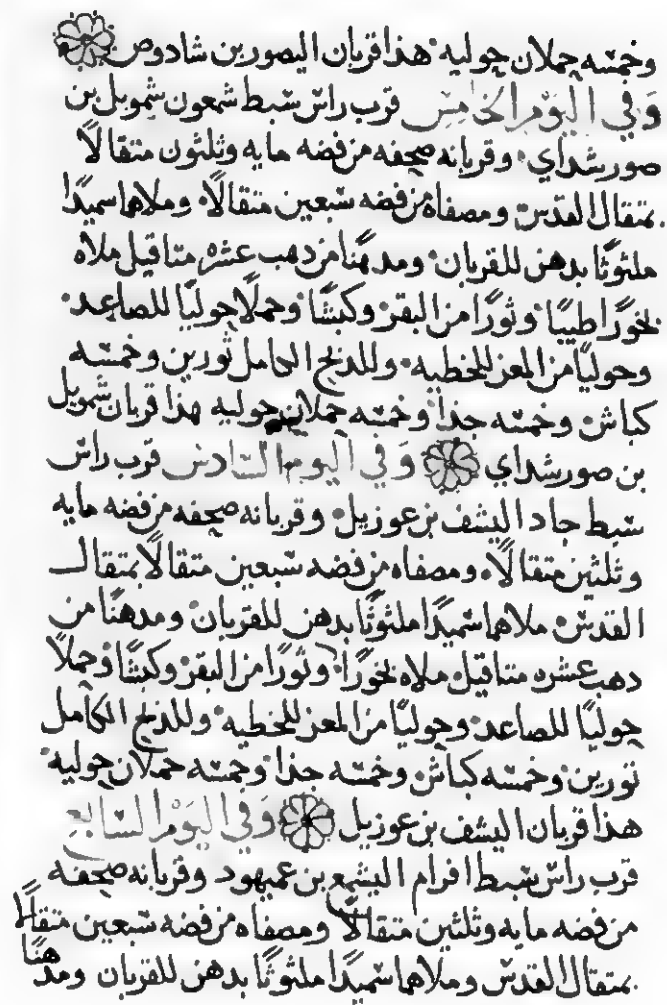 وخمسه حملان حوليه هذا قربان اليصور بن شادوص
وَفي اليَوم الخامِس قرب راس سبط شمعون شمويل بن
صورشداي وقربانه صحفه من فضه مايه وثلثون متقالًا
بمتقال القدس ومصفاه من فضه سبعين متقالًا وملاهما سميدًا
ملثوثًا بدهن للقربان ومدهنًا من دهب عشره متاقيل ملاه
بخورًا طيبًا وثورًا من البقر وكبشًا وحملًا حوليًا للصاعد
وحوليًا من المعز للخطيه وللذبح الكامل ثورين وخمسه
كباش وخمسه جدا وخمسه حملان حوليه هذا قربان شمويل
بن صورشداي وَفي اليوم السادس قرب راس
سبط جاد اليشف بن عوزيل وقربانه صحفه من فضه مايه
وثلثين متقالًا ومصفاه من فضه سبعين متقالًا بمتقال
القدس ملاهما سميدًا ملثوثًا بدهن للقربان ومدهنًا من
دهب عشره متاقيل ملاه بخورًا وثورًا من البقر وكبشًا وحملًا
حوليًا للصاعد وحوليًا من المعز للخطيه وللذبح الكامل
تورين وخمسه كباش وخمسه جدا وخمسه حملان حوليه
هذا قربان اليشف بن عوزيل وَفي اليَوم السابع
قرب راس سبط افرام اليشمع بن عميهود وقربانه صحفه
من فضه مايه وثلثين متقالًا ومصفاه من فضه سبعين متقالًا
بمتقال القدس وملاهما سميدًا ملثوثًا بدهن للقربان ومدهنًا